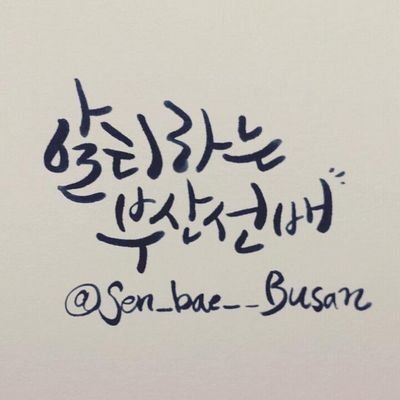 알티하는
부산선배
@Sen_bae__Busan